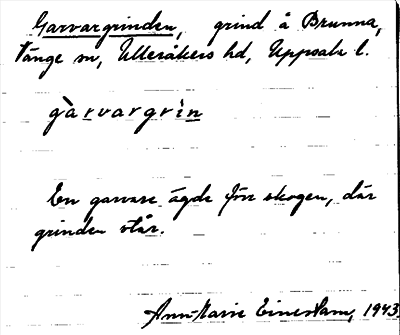 Garvargrinden, grind å Brunna,
Vänge sn, Ulleråkers hd, Uppsala l.
gàrvargrìn
En garvare ägde förr skogen, där
grinden står.
Ann-Marie Einestam, 1943